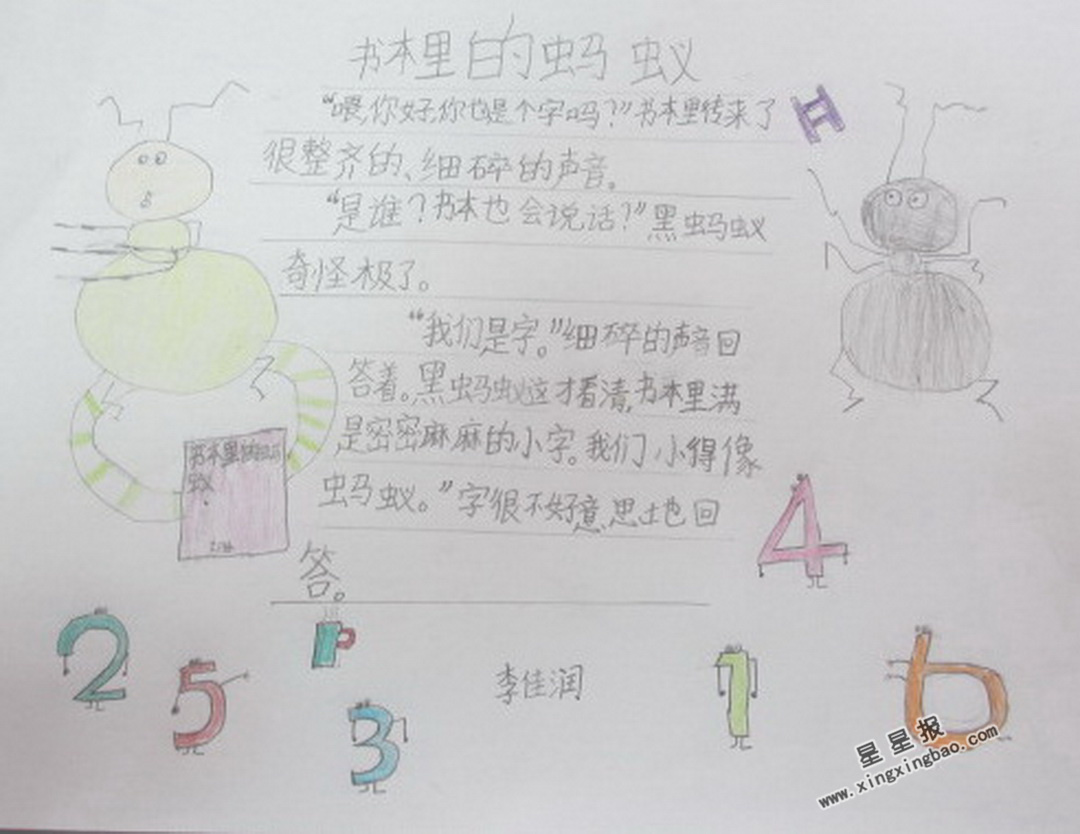 书本里的蚂蚁
“喂,你好,你也是个字吗?”书本里传来了
很整齐的、细碎的声音。
“是谁?书本也会说话?”黑蚂蚁
奇怪极了。
“我们是字。”细碎的声音回
答着。黑蚂蚁这才看清,书本里满
是密密麻麻的小字。我们小得像
蚂蚁。”字很不好意思地回
答。
书本里的
蚁
H
4
2
5
3
1
6
李佳润
星星报
www.xingxingbao.com